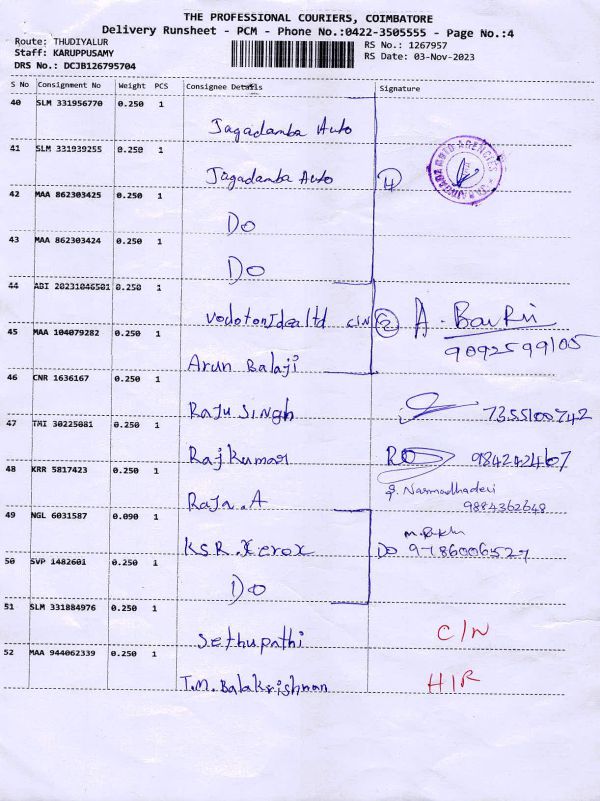 THE PROFESSIONAL COURIERS, COIMBATORE
Delivery Runsheet - PCM - Phone No.:0422-3505555 - Page No.:4
Route: THUDIYALUR
Staff: KARUPPUSAMY
DRS No.: DCJB126795704
RS No.: 1267957
RS Date: 03-Nov-2023
S No Consignment No Weight PCS Consignee Details Signature
40 SLM 331956770 0.250 1
Jagadamba Auto
41 SLM 331939255 0.250 1
Jagadamba Auto 4
42 MAA 862303425 0.250 1
Do
43 MAA 862303424 0.250 1
Do
44 ABI 20231046501 0.250 1
VodotonIdea ltd C/N 2
9092599105
45 MAA 104079282 0.250 1
Arun Balaji
46 CNR 1636167 0.250 1
Raju Singh 7355100742
47 TMI 30225081 0.250 1
Rajkumar 9842424467
48 KRR 5817423 0.250 1
Raja.A
Narmadhadevi
9884362648
49 NGL 6031587 0.090 1
KSR.Xerox DO 9786006527
50 SVP 1482601 0.250 1
Do
51 SLM 331884976 0.250 1
Sethupathi C/N
52 MAA 944062339 0.250 1
T.M.Balakrishnan H/R